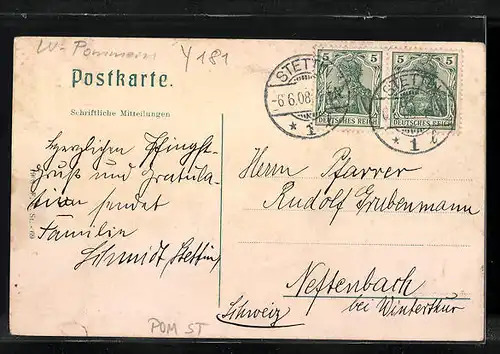 LV- Pommern
Y 181
Postkarte.
5 5
5 5
DEUTSCHES REICH
DEUTSCHES REICH
STETTIN
-6.6.08.
* 1
STETTIN
* 1
Schriftliche Mitteilungen
Herzlichen Pfingst-
gruß und Gratula-
tion sendet
Familie
Schmidt (Stettin)
Herrn Pfarrer
Rudolf Grubenmann
Neftenbach
bei Winterthur
Schweiz
POM ST